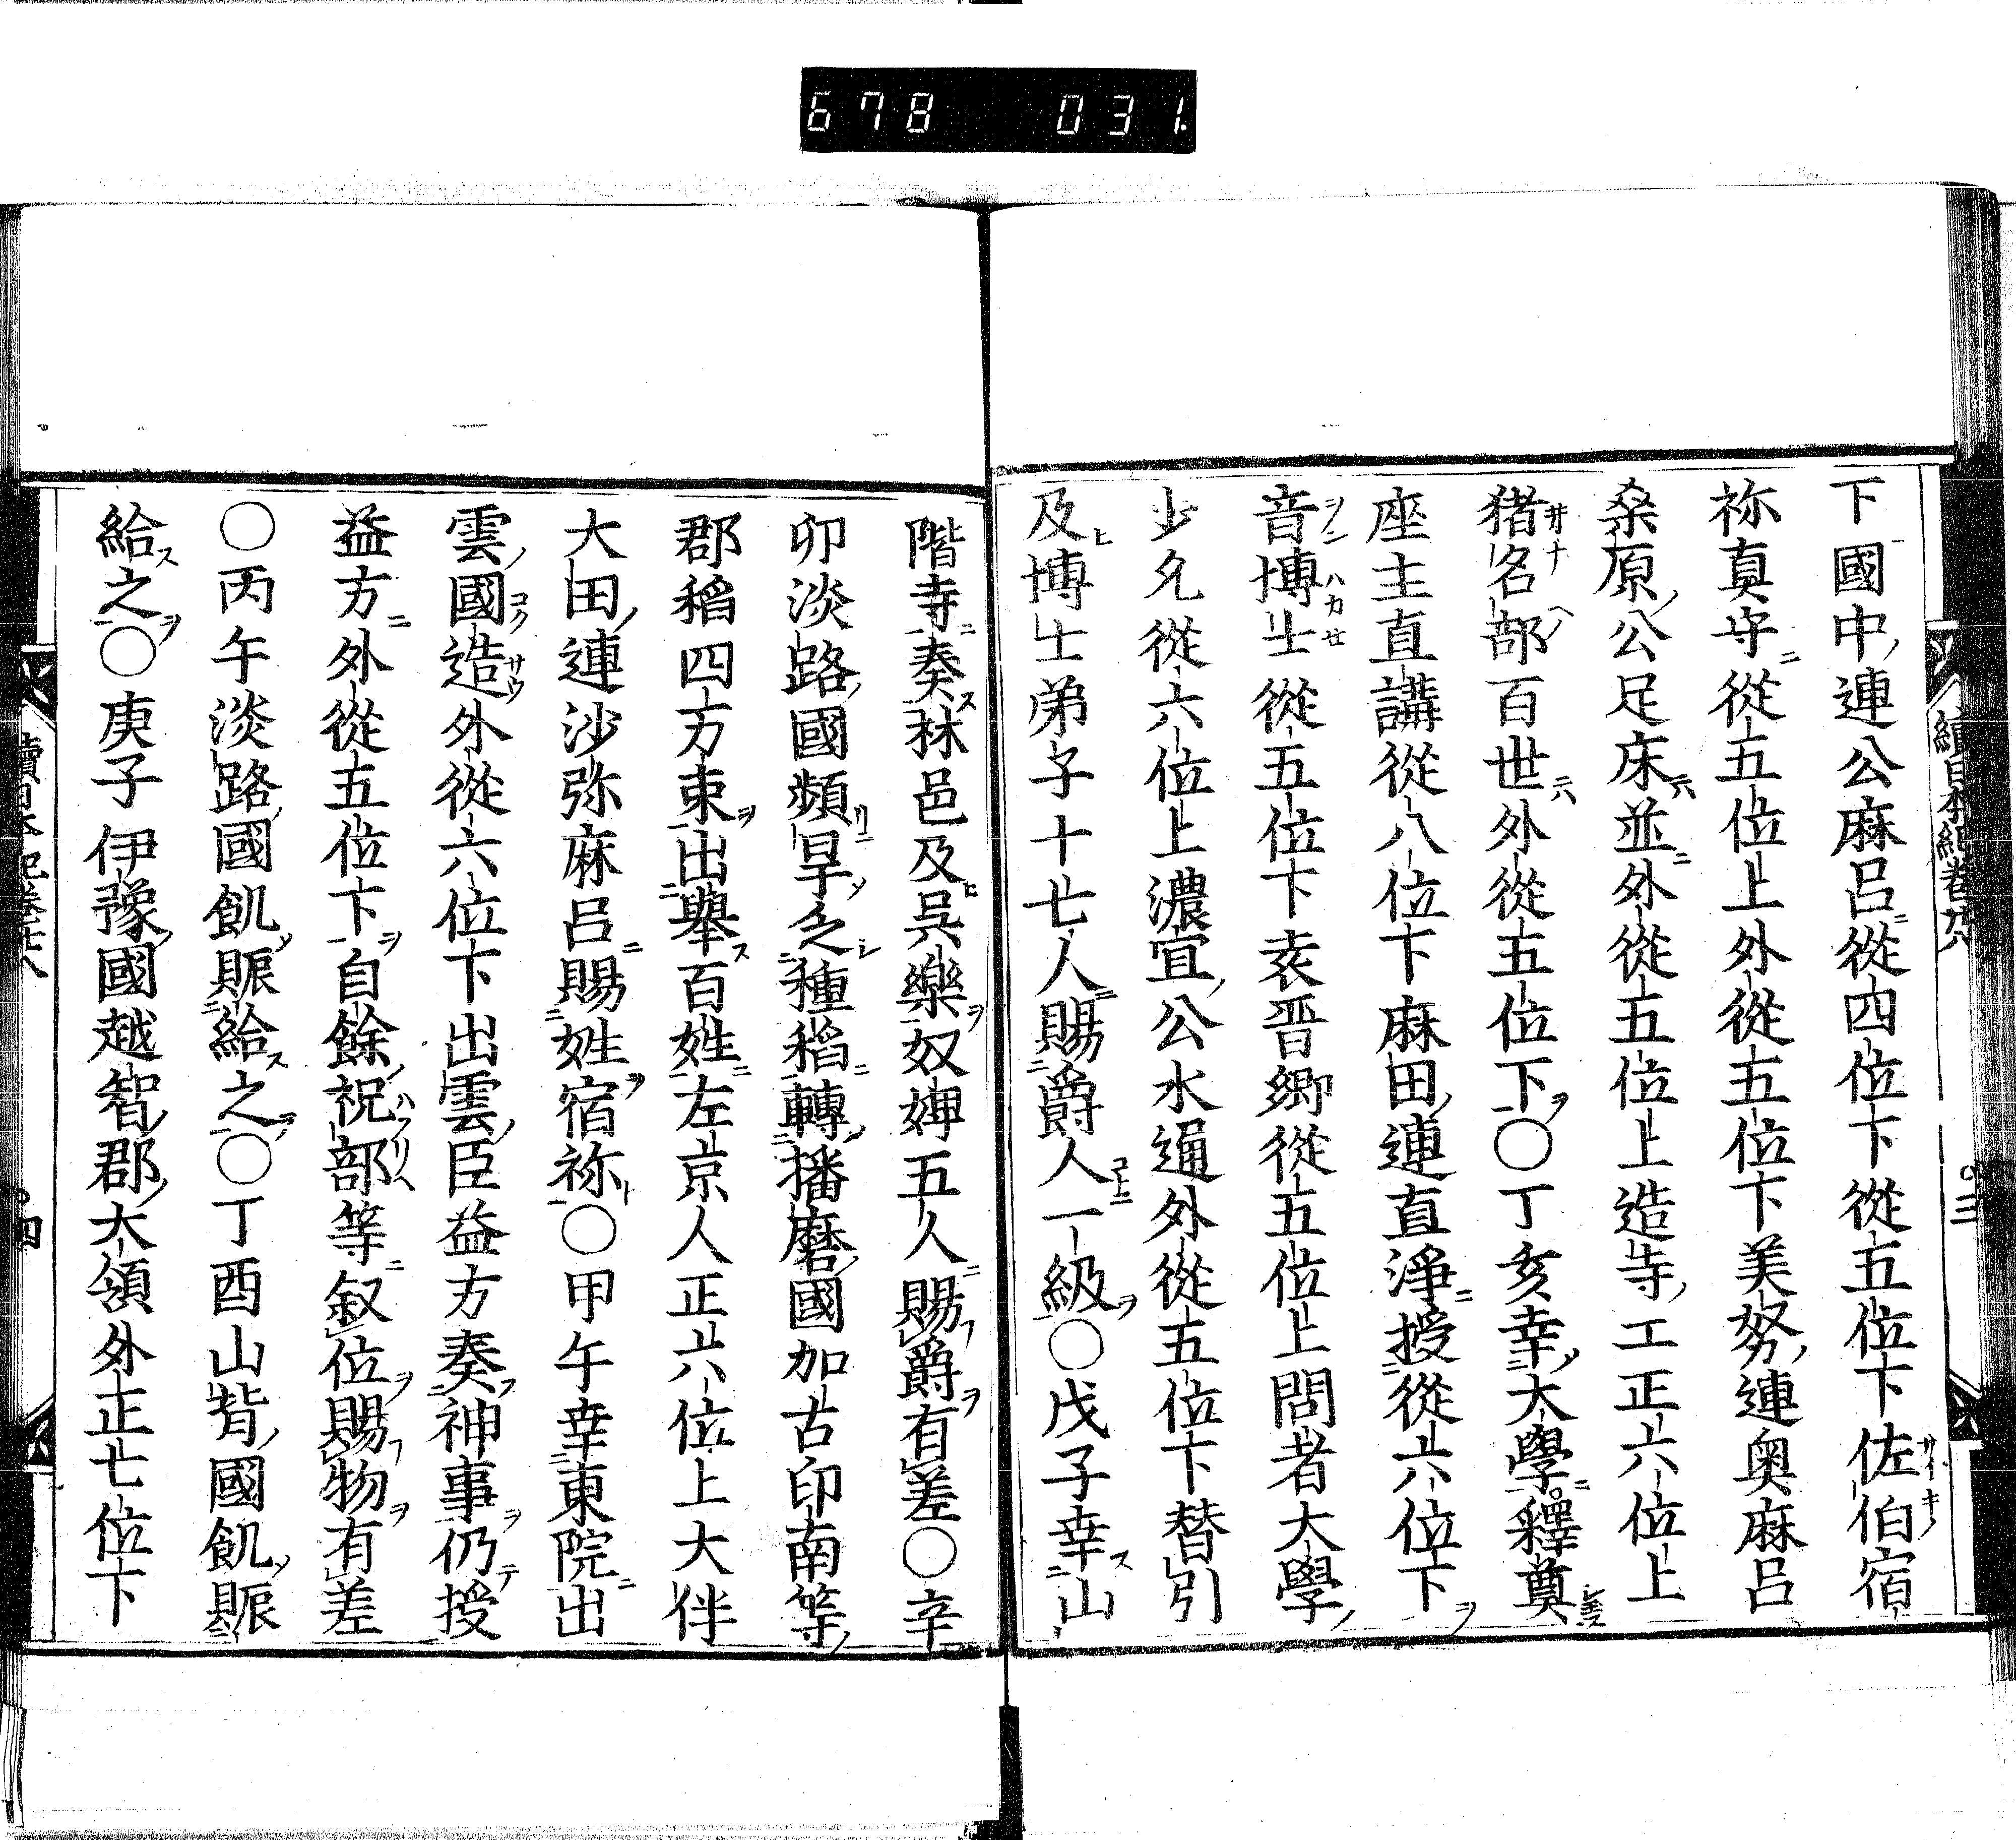 678 031
續日本紀卷廿八 ○三
下國中連公麻呂從四位下從五位下佐伯宿
祢真守從五位上外從五位下美努連奥麻呂
桑原公足床並外從五位上造寺工正六位上
猪名部百世外從五位下○丁亥幸大學釋奠
座主直講從八位下麻田連直淨授從六位下
音博士從五位下袁晋卿從五位上問者大學
少允從六位上濃宜公水通外從五位下替引
及博士弟子十七人賜爵人一級○戊子幸山
階寺奏林邑及呉樂奴婢五人賜爵有差○辛
卯淡路國頻旱乏種稻轉播磨國加古印南等
郡稻四万束出擧百姓左京人正六位上大伴
大田連沙弥麻呂賜姓宿祢○甲午幸東院出
雲國造外從六位下出雲臣益方奏神事仍授
益方外從五位下自餘祝部等叙位賜物有差
○丙午淡路國飢賑給之○丁酉山背國飢賑
給之○庚子伊豫國越智郡大領外正七位下
續日本紀卷廿八 ○四